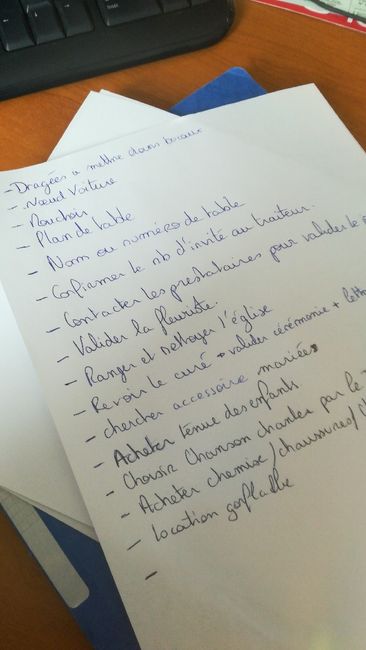 - Dragées a mettre dans bocaux
- Nœud Voiture
- Mouchoir
- Plan de table
- Nom ou numéros de table
- Confirmer le nb d'invité au traiteur.
- Contacter les prestataires pour valider le
- Valider la fleuriste.
- Ranger et nettoyer l'église
- Revoir le curé + valider cérémonie +
- chercher accessoire mariées
- Acheter tenue des enfants
- Choisir Chanson chanter par le
- Acheter chemise / chaussures /
- Location gonflable
-